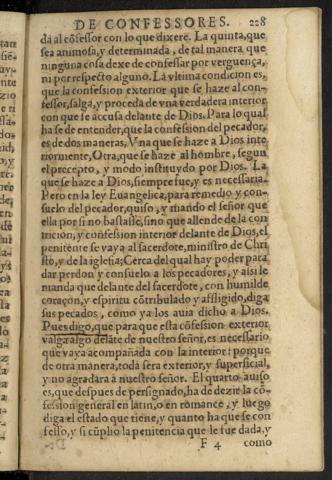 DE CONFESSORES. 228
da al cõfessor con lo que dixere. La quinta, que
sea animosa, y determinada, de tal manera que
ninguna cosa dexe de confessar por verguença,
ni por respecto alguno. La vltima condicion es,
que la confession exterior que se haze al con-
fessor, salga, y proceda de vna verdadera interior
con que se accusa delante de Dios. Para lo qual
ha se de entender, que la confession del pecador,
es de dos maneras, Vna que se haze a Dios inte
riormente, Otra, que se haze al hombre, segun
el precepto, y modo instituydo por Dios. La
que se haze a Dios, siempre fue, y es necessaria.
Pero en la ley Euangelica, para remedio y con-
suelo del pecador, quiso, y mando el señor que
ella por si no bastasse, sino que allende de la con
tricion, y confession interior delante de Dios, el
penitente se vaya al sacerdote, ministro de Chri
sto, y de la iglesia; Cerca del qual hay poder para
dar perdon y consuelo a los pecadores, y assi le
manda que delante del sacerdote, con humilde
coraçon, y espiritu cõtribulado y affligido, diga
sus pecados, como ya los auia dicho a Dios.
Pues digo, que para que esta cõfession exterior
valga algo delãte de nuestro señor, es necessario
que vaya acompañada con la interior: porque
de otra manera, toda sera exterior, y superficial,
y no agradara à nuestro señor. El quarto auiso
es, que despues de persignado, ha de dezir la cõ-
fession general en latin, o en romance, y luego
diga el estado que tiene, y quanto ha que se con
fesso, y si cũplio la penitencia que le fue dada, y
F 4 como